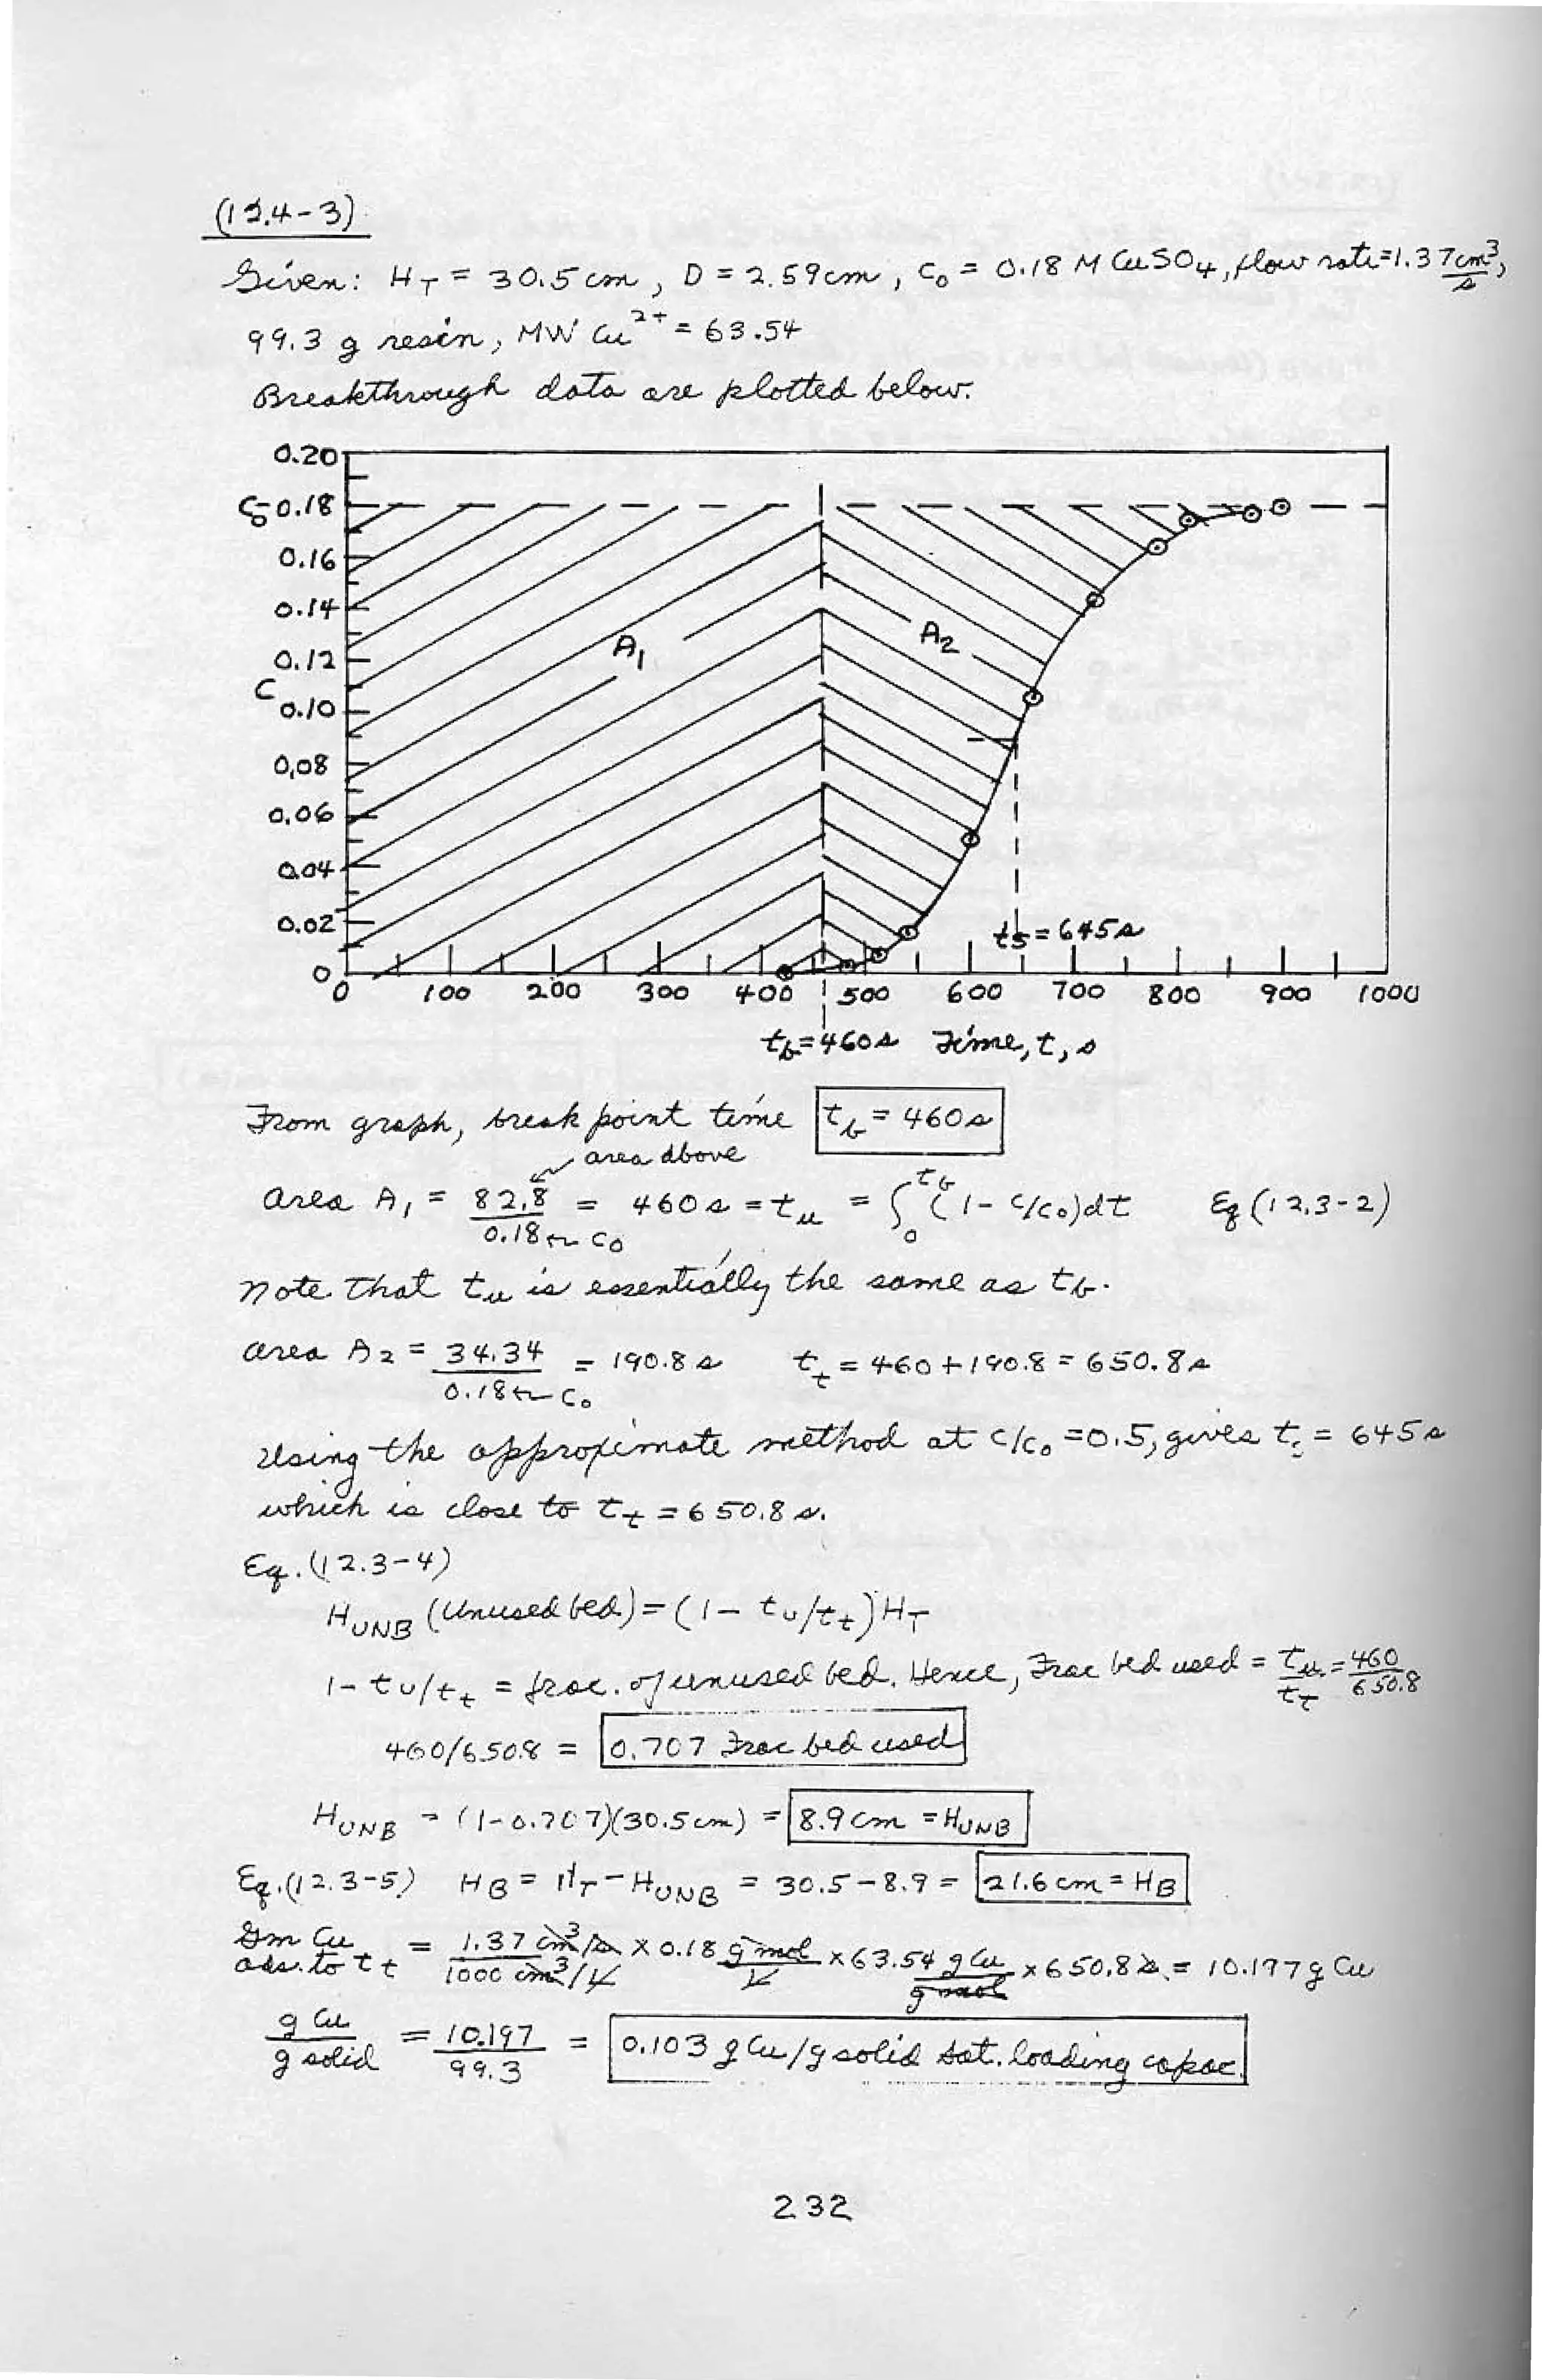 (12.4-3)
Given: H_T = 30.5 cm, D = 2.59 cm, c₀ = 0.18 M CuSO₄, flow rate = 1.37 cm³/s,
99.3 g resin, MW Cu²⁺ = 63.54
Breakthrough data are plotted below.
0.20
c₀-0.18
0.16
0.14
0.12
c
0.10
0.08
0.06
0.04
0.02
0
A₁
A₂
t_s = 645 s
0 100 200 300 400 500 600 700 800 900 1000
t_b = 460 s Time, t, s
From graph, break point time t_b = 460 s
area above
Area A₁ = 82.8/0.18 ← c₀ = 460 s = t_u = ∫₀^t_b (1 - c/c₀)dt Eq (12.3-2)
Note that t_u is essentially the same as t_b.
Area A₂ = 34.34/0.18 ← c₀ = 190.8 s t_t = 460 + 190.8 = 650.8 s
Using the approximate method at c/c₀ = 0.5, gives t_s = 645 s
which is close to t_t = 650.8 s.
Eq. (12.3-4)
H_UNB (Unused bed) = (1 - t_u/t_t) H_T
1 - t_u/t_t = frac. of unused bed. Hence, Frac bed used = t_u/t_t = 460/650.8
460/650.8 = 0.707 Frac bed used
H_UNB = (1-0.707)(30.5 cm) = 8.9 cm = H_UNB
Eq. (12.3-5) H_B = H_T - H_UNB = 30.5 - 8.9 = 21.6 cm = H_B
Gm Cu ads. to t_t = 1.37 cm³/s / 1000 cm³/L × 0.18 g mol/L × 63.54 g Cu/g mol × 650.8 s = 10.197 g Cu
g Cu/g solid = 10.197/99.3 = 0.103 g Cu/g solid sat. loading capac.
232